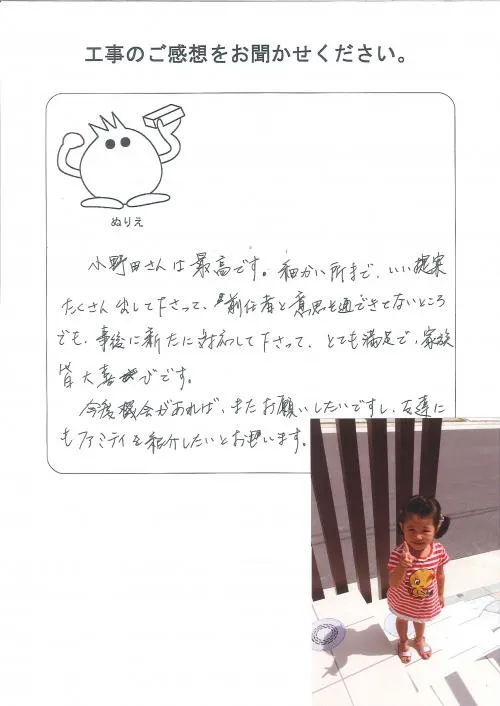 工事のご感想をお聞かせください。
ぬりえ
小野田さんは最高です。細かい所まで、いい提案
たくさん出して下さって、前任者と意思を通できてないところ
でも、事後に新たに対応して下さって、とても満足で、家族
皆大喜びです。
今後機会があれば、またお願いしたいですし、友達に
もファミティを紹介したいとお思います。